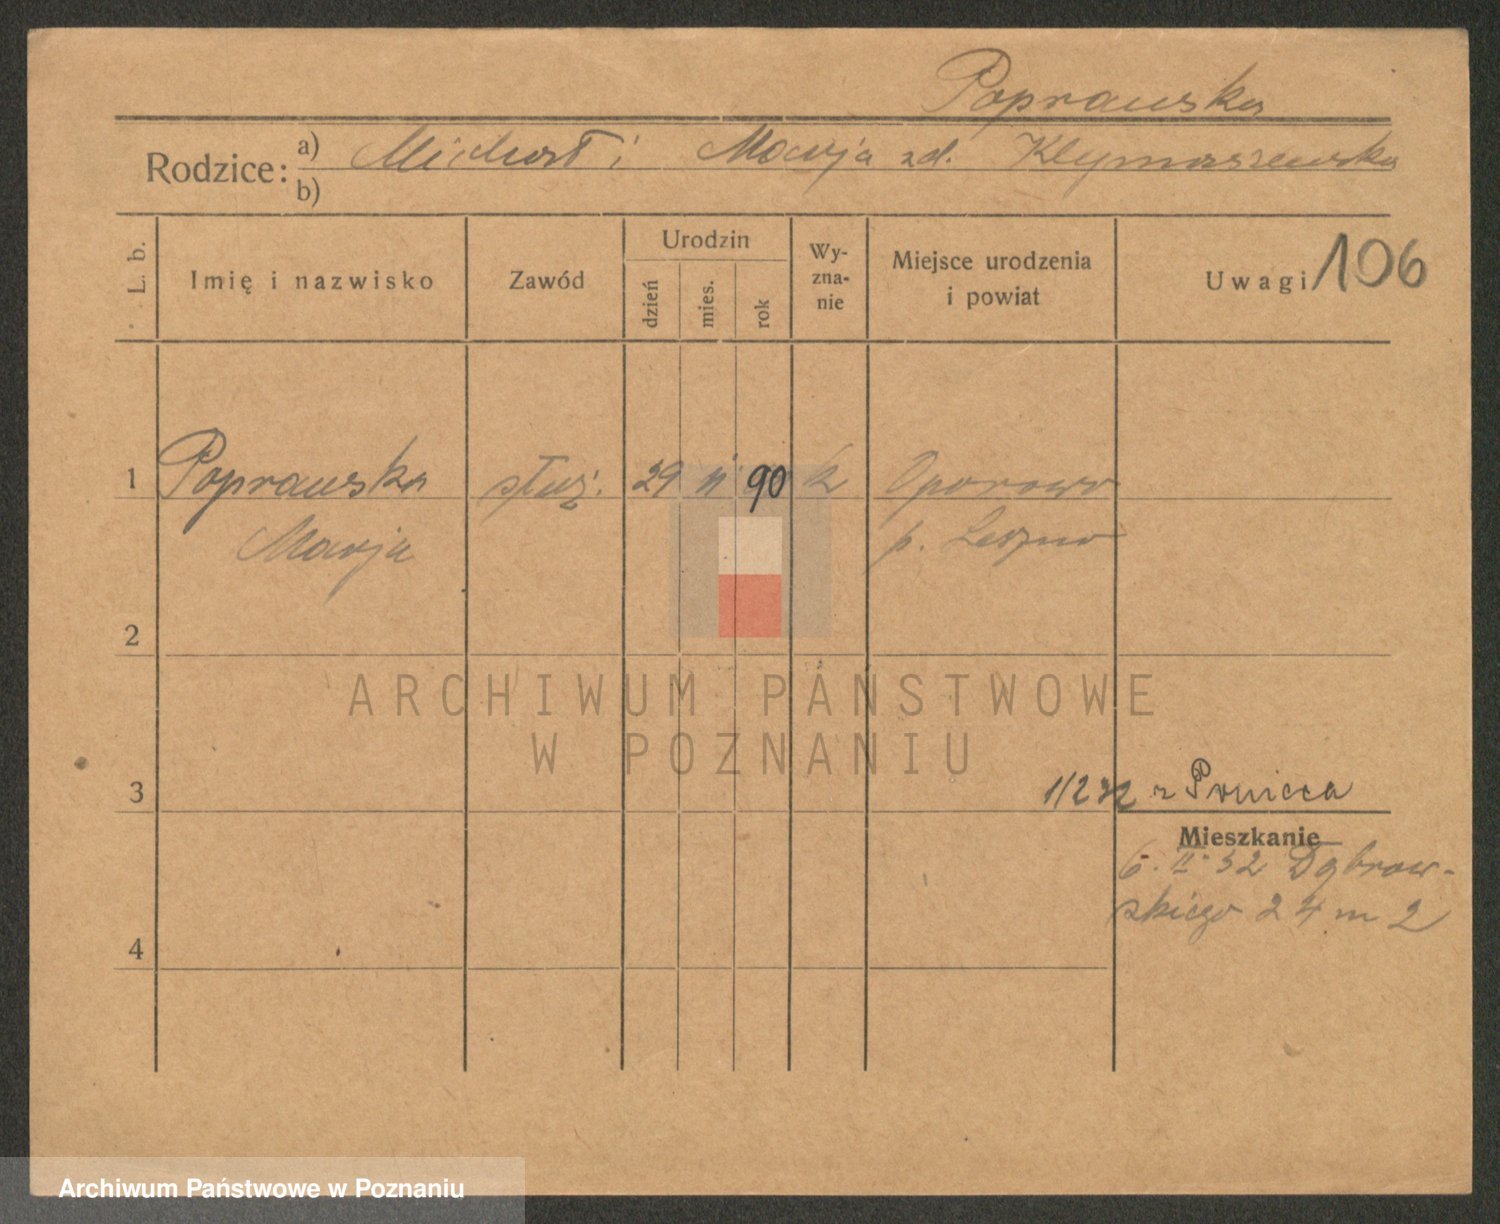 Poprawska
Rodzice: a) Michał i Marja zd. Klymaszewska
b)
L. b.
Imię i nazwisko
Zawód
Urodzin
dzień
mies.
rok
Wy-
zna-
nie
Miejsce urodzenia
i powiat
Uwagi 106
1 Poprawska służ. 29 11 90 k Oporowo
Marja p. Leszno
2
ARCHIWUM PAŃSTWOWE
W POZNANIU
3
1/2 32 z
Mieszkanie
6. II. 32 Dąbrow-
skiego 24 m 2
4
Archiwum Państwowe w Poznaniu